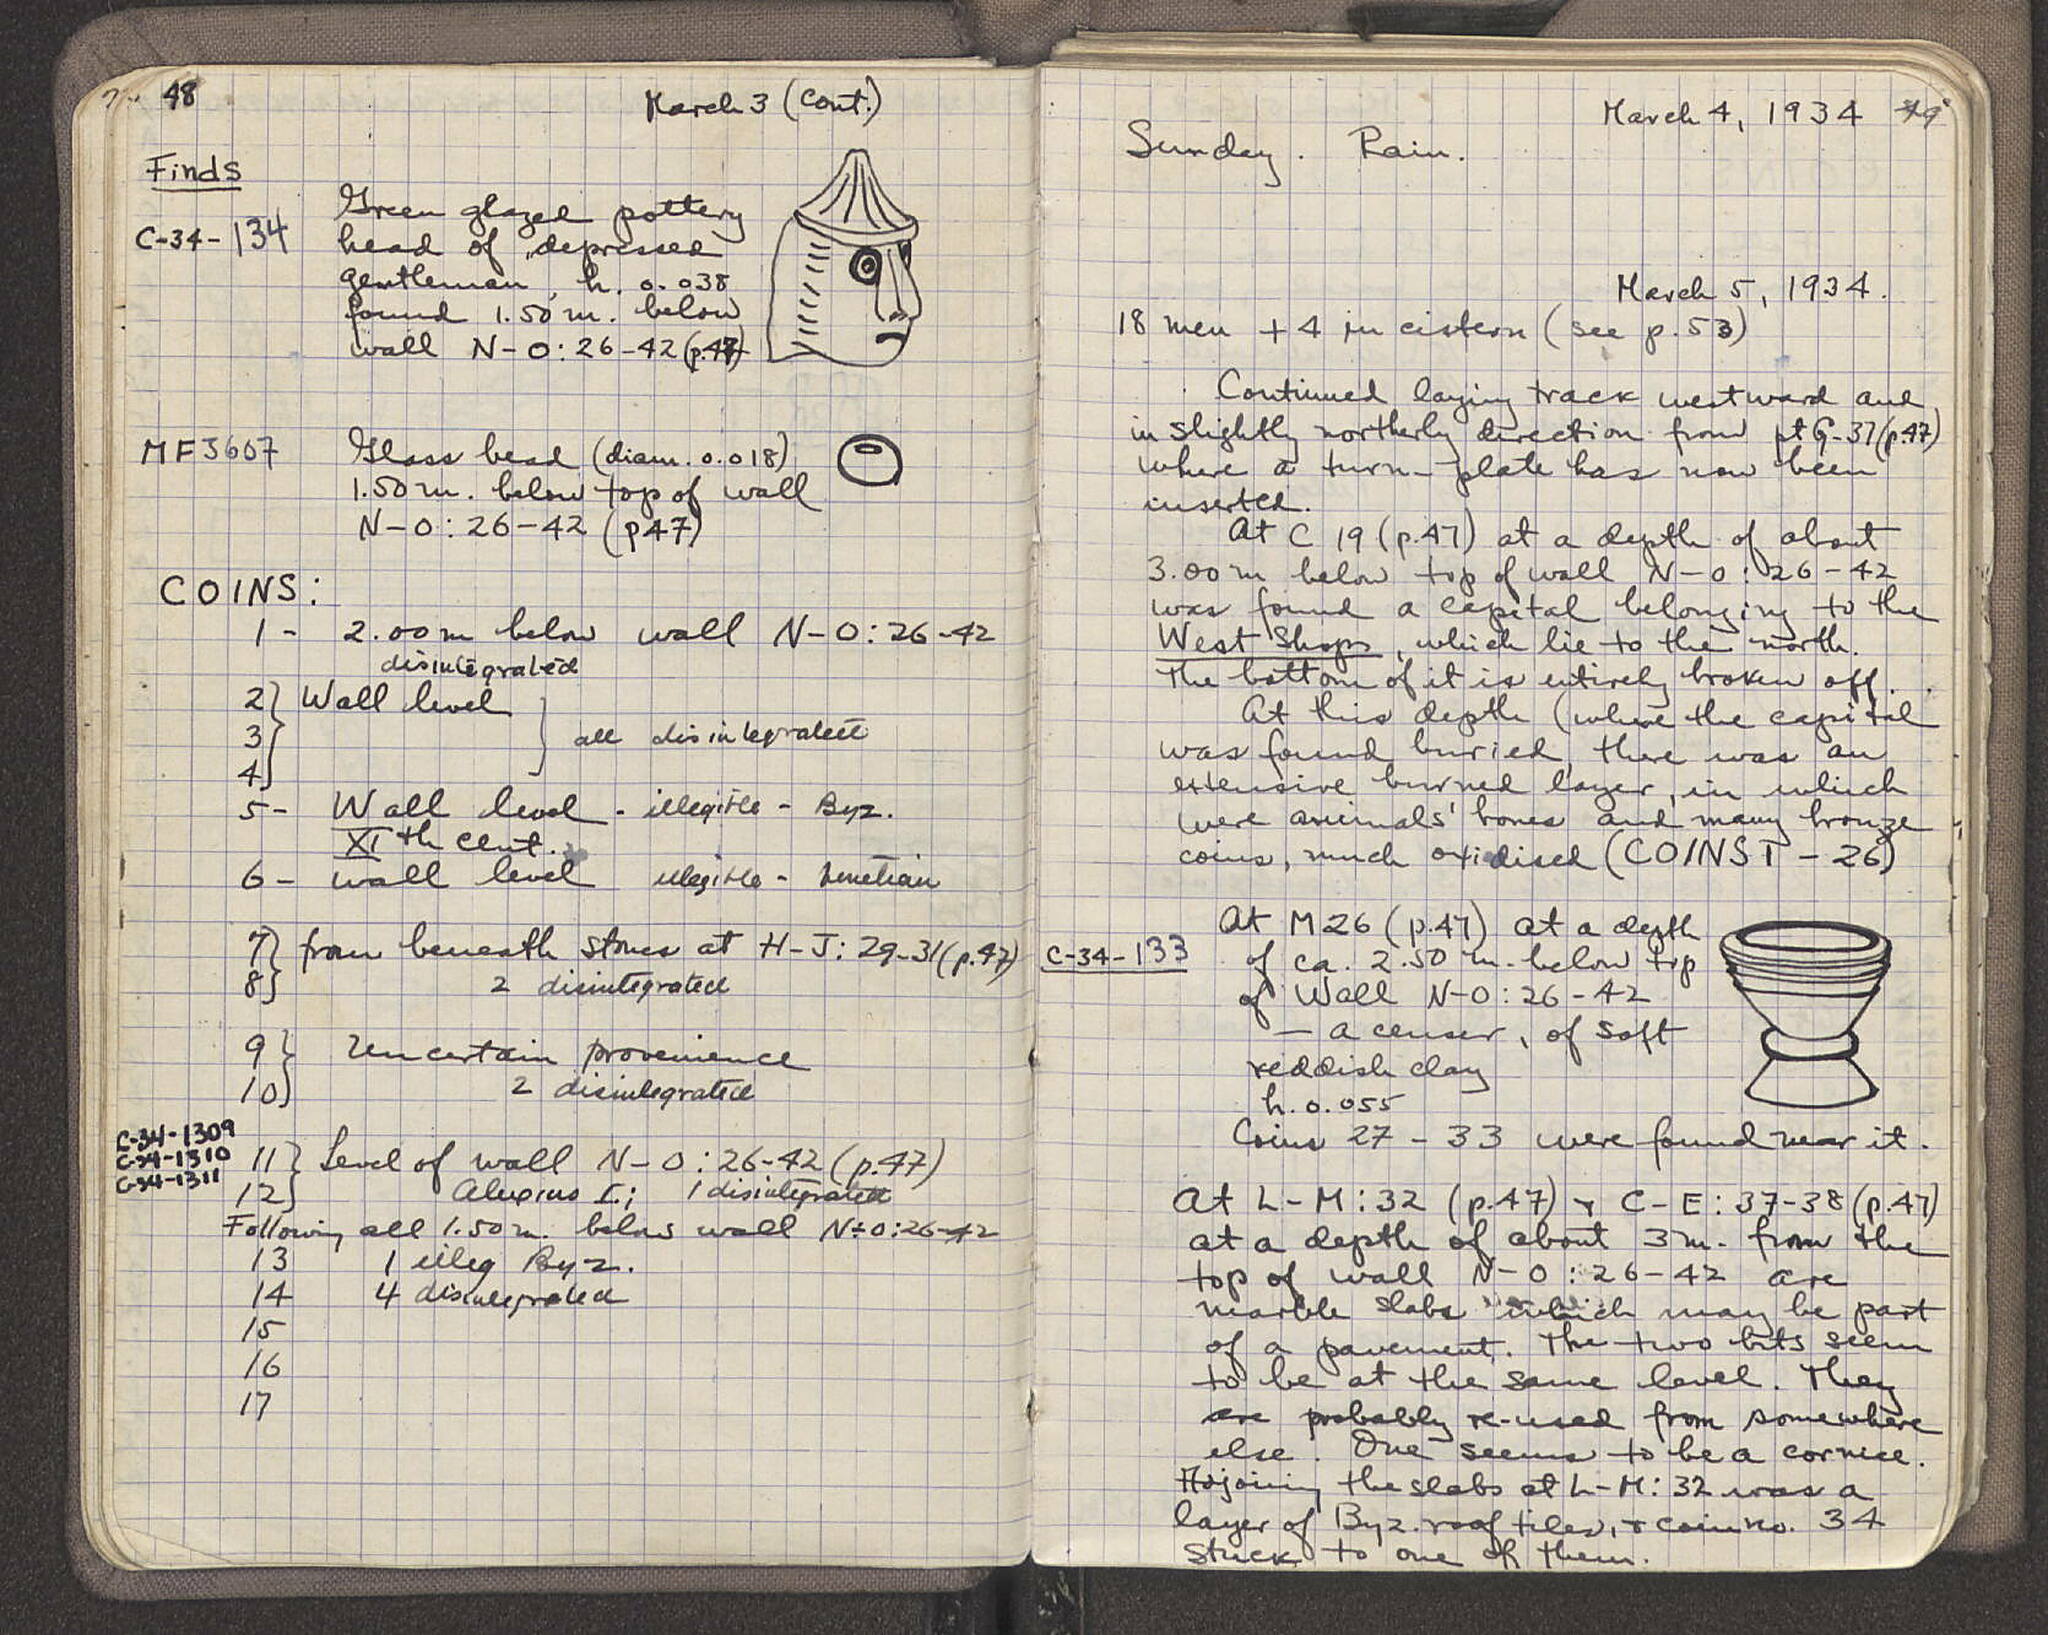 48
March 3 (cont.)
Finds
C-34-134
Green glazed pottery
head of "depressed
gentleman, h. 0.038
found 1.50 m. below
wall N-O: 26-42 (p.47)
MF3607
Glass bead (diam. 0.018)
1.50 m. below top of wall
N-O: 26-42 (p47)
COINS:
1 - 2.00 m below wall N-O: 26-42
disintegrated
2} Wall level
3 all disintegrated
4
5 - Wall level - illegible - Byz.
XIth cent.
6 - wall level illegible - Venetian
7} from beneath stones at H-J: 29-31 (p.47)
8} 2 disintegrated
9} Uncertain provenience
10} 2 disintegrated
C-34-1309
C-34-1310
C-34-1311
11} Level of wall N-O: 26-42 (p.47)
12} Alexius I; 1 disintegrated
Following all 1.50 m. below wall N-O: 26-42
13 1 illeg Byz.
14 4 disintegrated
15
16
17
March 4, 1934 49
Sunday. Rain.
March 5, 1934.
18 men + 4 in cistern (see p. 53)
Continued laying track westward and
in slightly northerly direction from pt G-37 (p.47)
where a turn-plate has now been
inserted.
At C 19 (p.47) at a depth of about
3.00 m below top of wall N-O: 26-42
was found a capital belonging to the
West Shops, which lie to the north.
The bottom of it is entirely broken off.
At this depth (where the capital
was found buried, there was an
extensive burned layer, in which
were animals' bones and many bronze
coins, much oxidised (COINS 1 - 26)
At M26 (p.47) at a depth
C-34-133 of ca. 2.50 m. below top
of Wall N-O: 26-42
- a censer, of soft
reddish clay
h. 0.055
Coins 27 - 33 were found near it.
At L-M: 32 (p.47) & C-E: 37-38 (p.47)
at a depth of about 3 m. from the
top of wall N-O: 26-42 are
marble slabs which may be part
of a pavement. The two bits seem
to be at the same level. They
are probably re-used from somewhere
else. One seems to be a cornice.
Adjoining the slabs at L-M: 32 was a
layer of Byz. roof tiles, & coin no. 34
stuck to one of them.